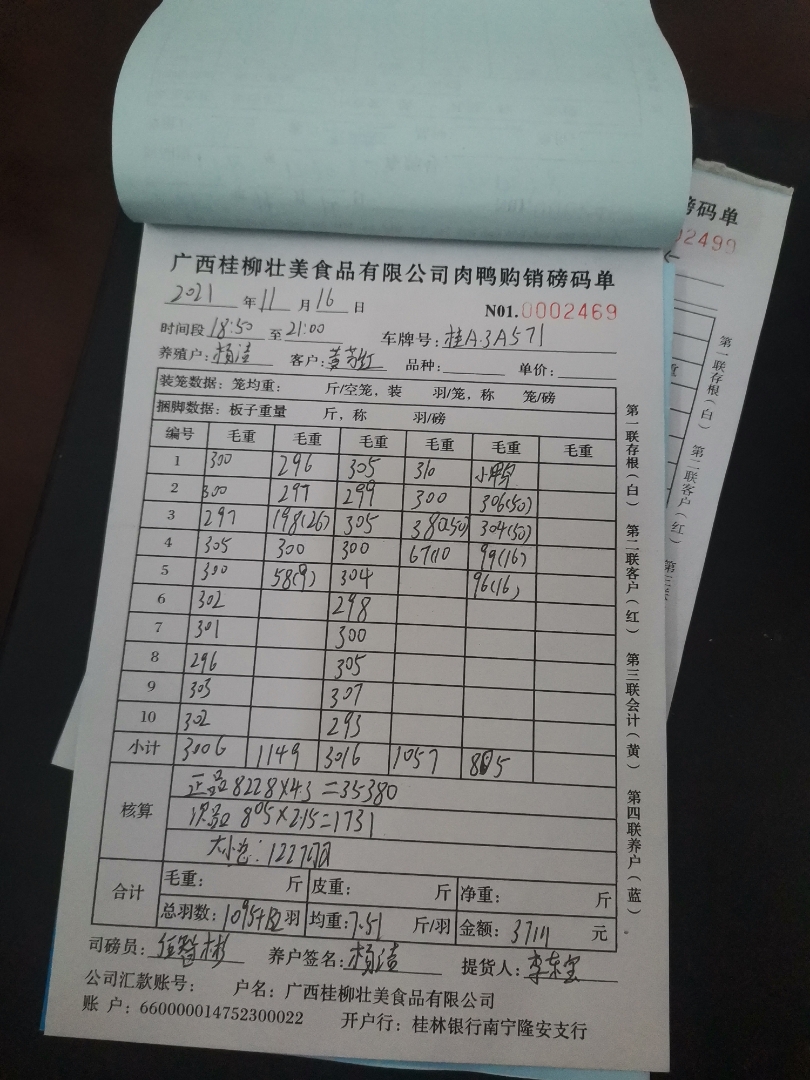 广西桂柳壮美食品有限公司肉鸭购销磅码单
2021 年 11 月 16 日 N01.0002469
时间段 18:50 至 21:00 车牌号: 桂A.3A571
养殖户: 客户: 品种: 单价:
装笼数据: 笼均重: 斤/空笼, 装 羽/笼, 称 笼/磅
捆脚数据: 板子重量 斤, 称 羽/磅
编号 毛重 毛重 毛重 毛重 毛重 毛重
1 300 296 305 310 小鸭
2 300 297 299 300 306(50)
3 297 198(26) 305 304(50)
4 305 300 300 99(16)
5 300 58(9) 304 96(16)
6 302 298
7 301 300
8 296 305
9 303 307
10 302 293
小计 3006 1149 3016 1057 805
核算 正品 8228×4.3=35380
次品 805×2.15=1731
大小
合计 毛重: 斤 皮重: 斤 净重: 斤
总羽数: 羽 均重: 7.51 斤/羽 金额: 37111 元
司磅员: 养户签名: 提货人:
公司汇款账号: 户名: 广西桂柳壮美食品有限公司
账 户: 660000014752300022 开户行: 桂林银行南宁隆安支行
第一联存根(白) 第二联客户(红) 第三联会计(黄) 第四联养户(蓝)
磅码单
02499
第一联存根(白) 第二联客户(红)